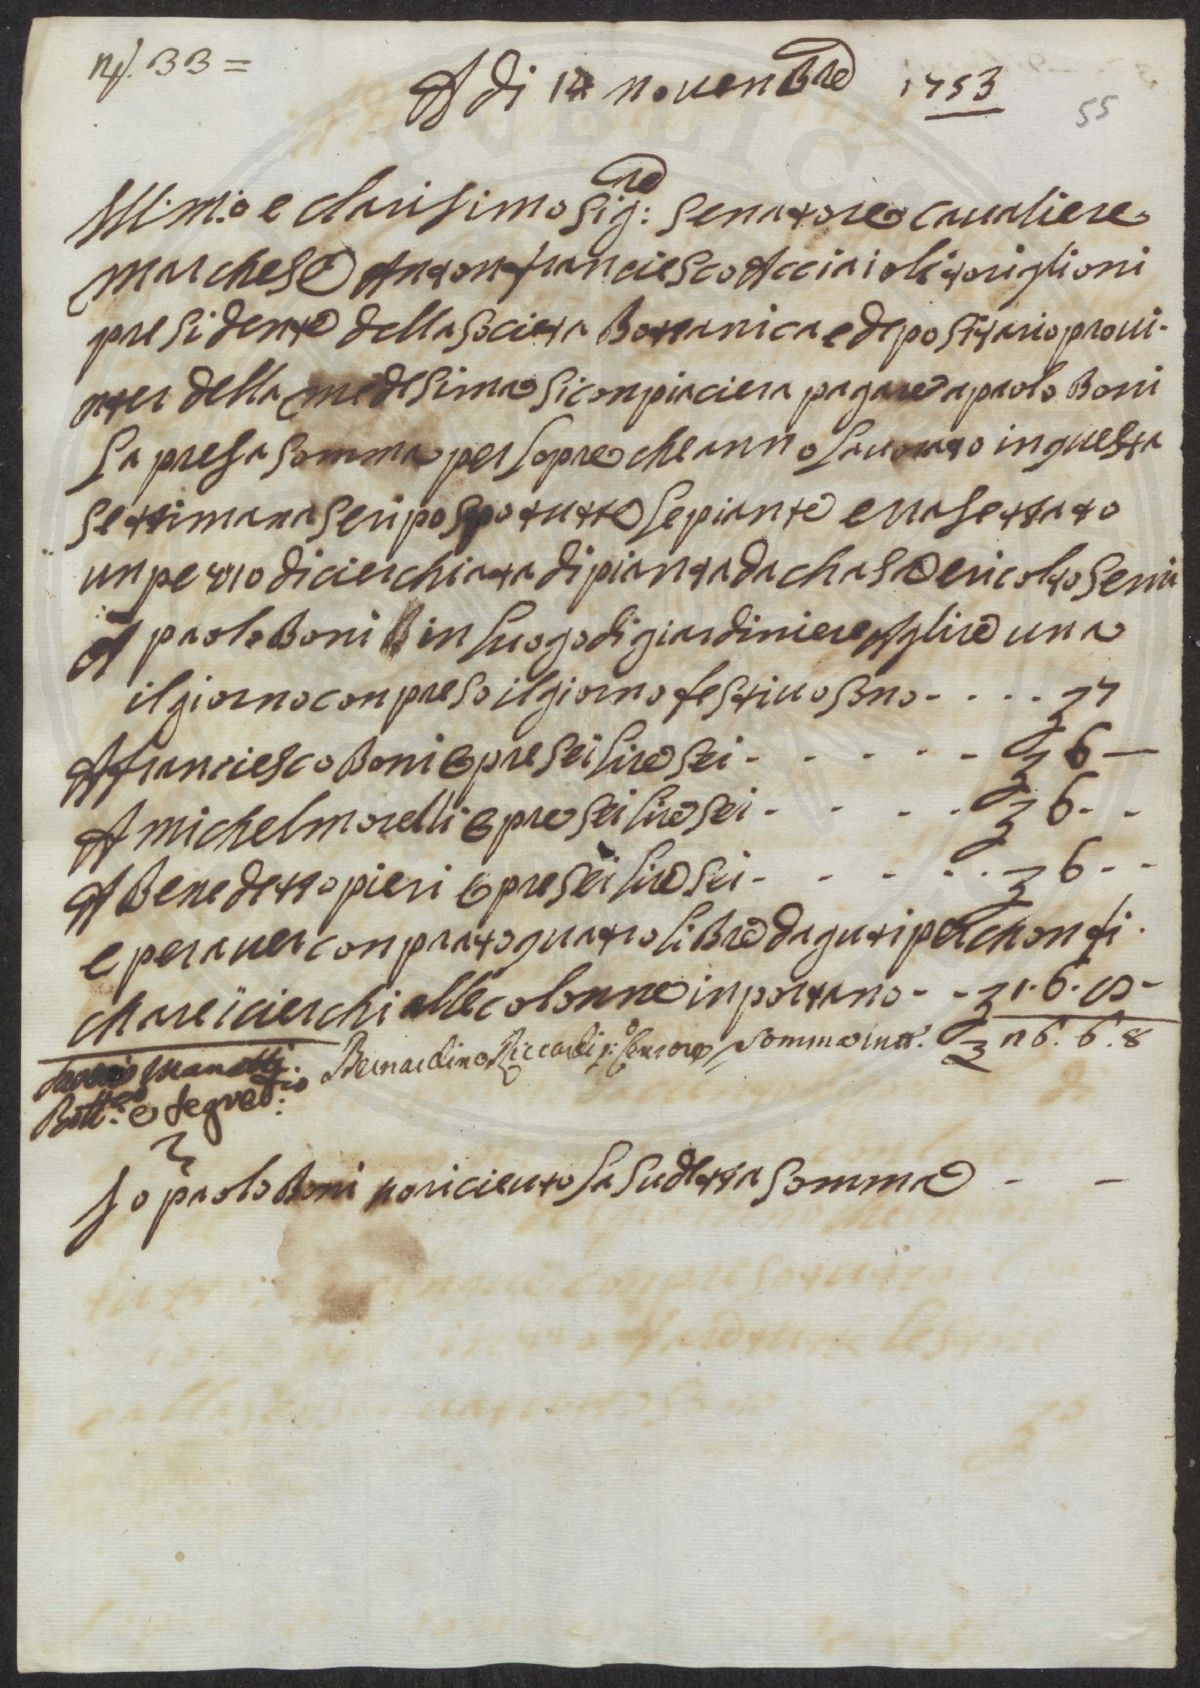 N.º 33 =
A di 17 novenbre 1753
55
Ill:m:o e clarisimo Sig:re Senatore cavaliere
marchese Antonfranciesco Acciaioli toriglioni
presidente della Societa Bottanica e depostitario provi-
nter della medesima si conpiaciera pagare a paolo Boni
La presa somma per lopre che anno lavorato in questa
settimana seriposto tutte le piante e rasettato
un pezzo di cierchiata di pianta da chasa e ricolto semi
A paolo Boni in luogo di giardiniere A lire una
il giorno conpreso il giorno festivo sono - - - - 7
A franciesco Boni 6 pre sei lire sei - - - - - 6 —
A michel morelli 6 pre sei lire sei - - - - 6 - -
A Benedetto pieri 6 pre sei lire sei - - - - 6 - -
e per aver conprato quatro libre daguti per chonfi
chare i cierchi alle colonne inportano - - 1. 6. 8 -
Saverio Manetti Bernardino Riccardi p:o Censore Somma in tt.o 26. 6. 8
Bott.co e Segret.rio
Io paolo Boni o riciеuto la sudetta somma - -